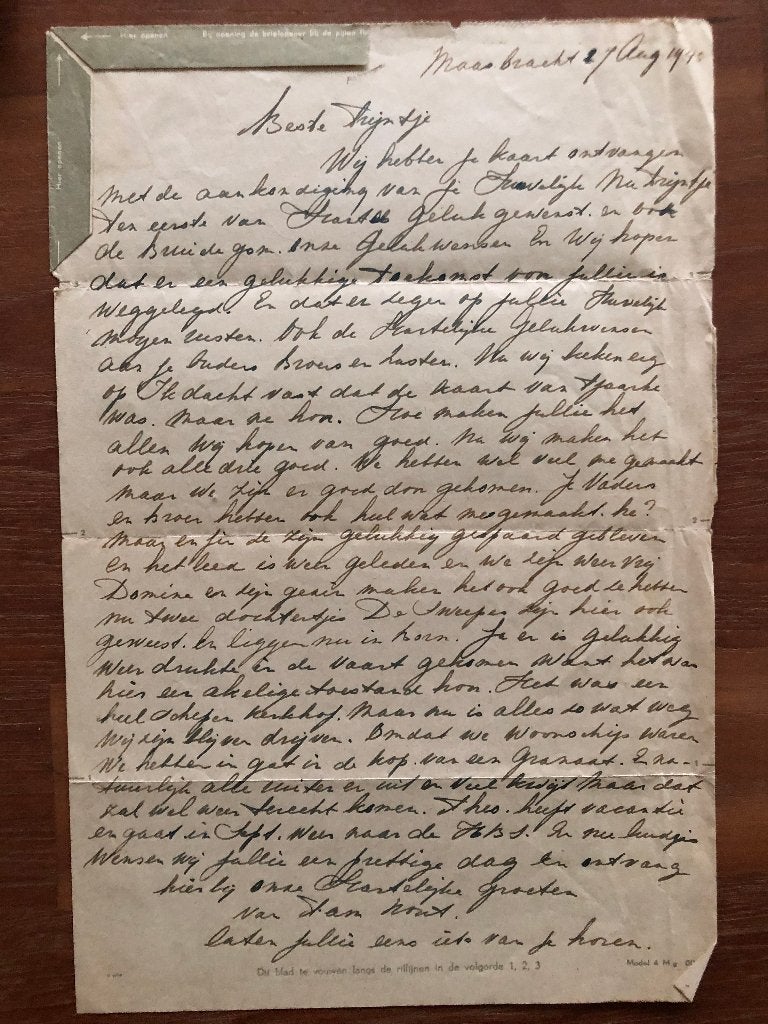 Hier openen Bij opening de briefopener bij de pijlen
Hier openen
Maasbracht 27 Aug 19
Beste Trijntje
Wij hebben je kaart ontvangen
met de aankondiging van je Huwelijk Nu Trijntje
ten eerste van Harte Geluk gewenst. en ook
de Bruidegom. onze Gelukwensen En Wij hopen
dat er een gelukkige toekomst voor jullie is
weggelegd. En dat er zegen op jullie Huwelijk
mogen rusten. Ook de Hartelijke Gelukwensen
aan je Ouders Broers en zusters. Nu wij keken erg
op Ik dacht vast dat de kaart van Tjaarke
was. maar ne hon. Hoe maken jullie het
allen Wij hopen van goed. Nu wij maken het
ook alle drie goed. We hebben wel veel me gemaakt
maar we zijn er goed door gekomen. Je Vaders
en Broer hebben ook heel wat mesgemaakt. he?
Maar en fin de zijn gelukkig gespaard gebleven
en het leed is weer geleden en we zijn weer vrij
Domine en zijn gezin maken het ook goed ze hebben
nu twee dochtertjes De Sweepes zijn hier ook
geweest. En liggen nu in horn. Ja er is gelukkig
weer drukte in de vaart gekomen want het was
hier een akelige toestand hon. Het was een
heel schepen kerkhof. Maar nu is alles zo wat weg
Wij zijn blijven drijven. Omdat we woonschip waren
We hebben in gat in de kop. van een Granaat. En na-
tuurlijk alle ruiten er uit en veel kwijt maar dat
zal wel weer terecht komen. Theo. heeft vacantie
en gaat in Sept. weer naar de H.B.S. En nu
Wensen wij jullie een prettige dag En ontvang
hierbij onze Hartelijke Groeten
van Fam
laten jullie eens iets van je horen.
Dit blad te vouwen langs de rillijnen in de volgorde 1, 2, 3
Model 4 M
3
3
2
2